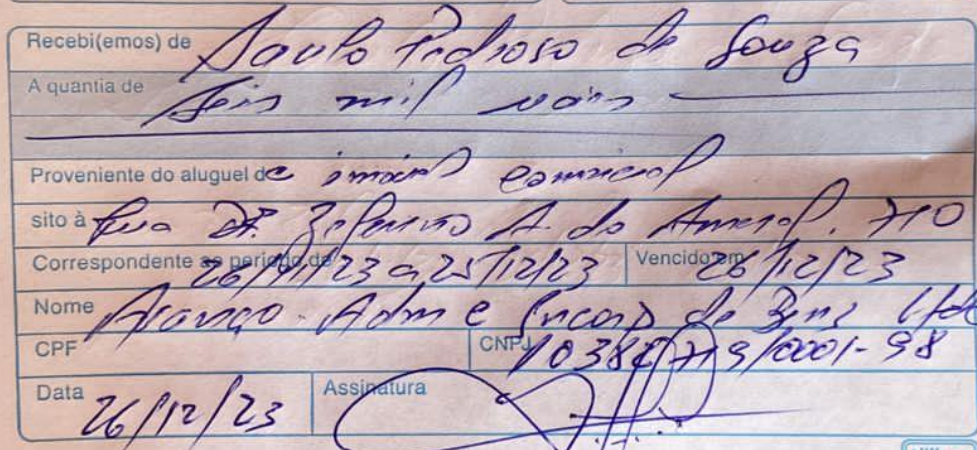 Recebi(emos) de Saulo Pedroso de Souza
A quantia de Seis mil reais
Proveniente do aluguel de imóvel comercial
sito à Rua Dr. Zeferino A. do Amaral, 710
Correspondente ao período de 26/11/23 a 25/12/23 Vencido em 26/12/23
Nome Adm e Incorp de Bens Ltda
CPF CNPJ /0001-98
Data 26/12/23 Assinatura